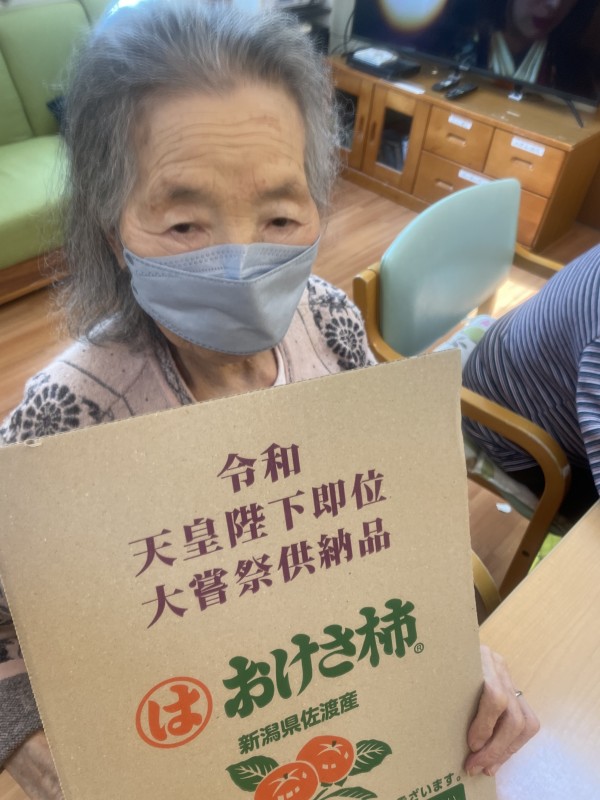 令和
天皇陛下即位
大嘗祭供納品
は おけさ柿®
新潟県佐渡産
ざいます。